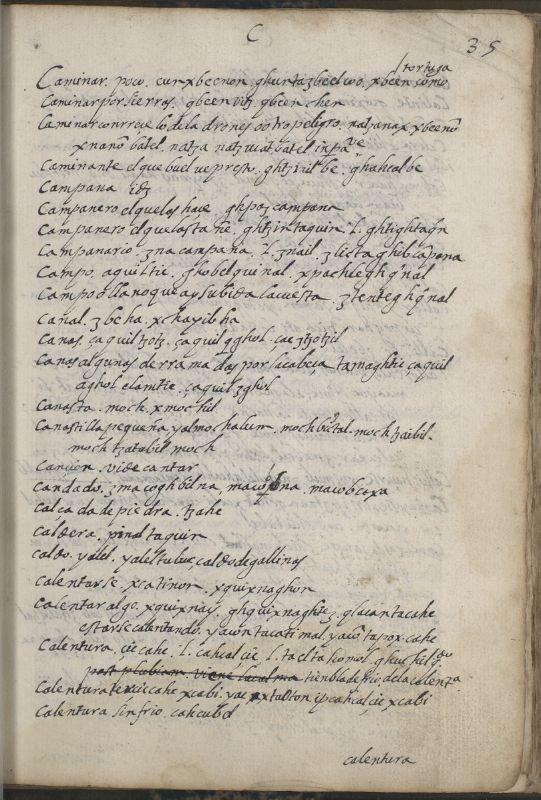 C
35
tortuga
Caminar. poco. curxbecnon ghurtaʒbeclwo. xbeen como
Caminar por sierras. gbeen vitz. gbeen. hen
Caminar con rrecelo de ladrones o otro peligro. natzanax xbeeno
xnano batel. natza natzucat batel inpa
Caminante el que buelve presto. ghtzviil be. ghahcalbe
Campana itz
Campanero el que las haçe. ghpaz campana
Campanero el que las tañe. ghtzintaquin. l. ghtightagn
Campanario. ʒna campana. l. ʒnail. ʒlicta ghibcapana
Campo. aquiltic. ghobelquinal. xpachiegh qnal
Campo o llano que ay subida la cuesta. ʒtentegh qnal
Canal. ʒbeha. xchayilha
Canas. çaquil tzotz. çaquil gghol. çac ztzotzil
Canas algunas derramadas por la cabeça tamaghtic çaquil
aghol elamtic. çaquil ʒghol
Canasta. moch. xmochil
Canastilla pequeña y almohalum. moch bictal. moch tzaibil.
moch tzatabil moch
Cançion. vide cantar
Candado. ʒmacoghbilna maco na. macobcaxa
Calçada de piedra. tzahc
Caldera. pinal taquin
Caldo. yalel. yalel tuluc caldo de gallinas
Calentarse. xcatinon. xquixnaghon
Calentar algo. xquixnay. ghquixnaghtez. glacantacahc
estarse calentando. yacon tacati mal. yaco tapox cahc
Calentura. çic cahc. l. cahcal çic. l. taclta
post plubiam viene la calma tienbla de frio de la calenta.
Calentura çic cahc xcabi. ipcahcal çic xcabi
Calentura sin frio. cahcubd
calentura